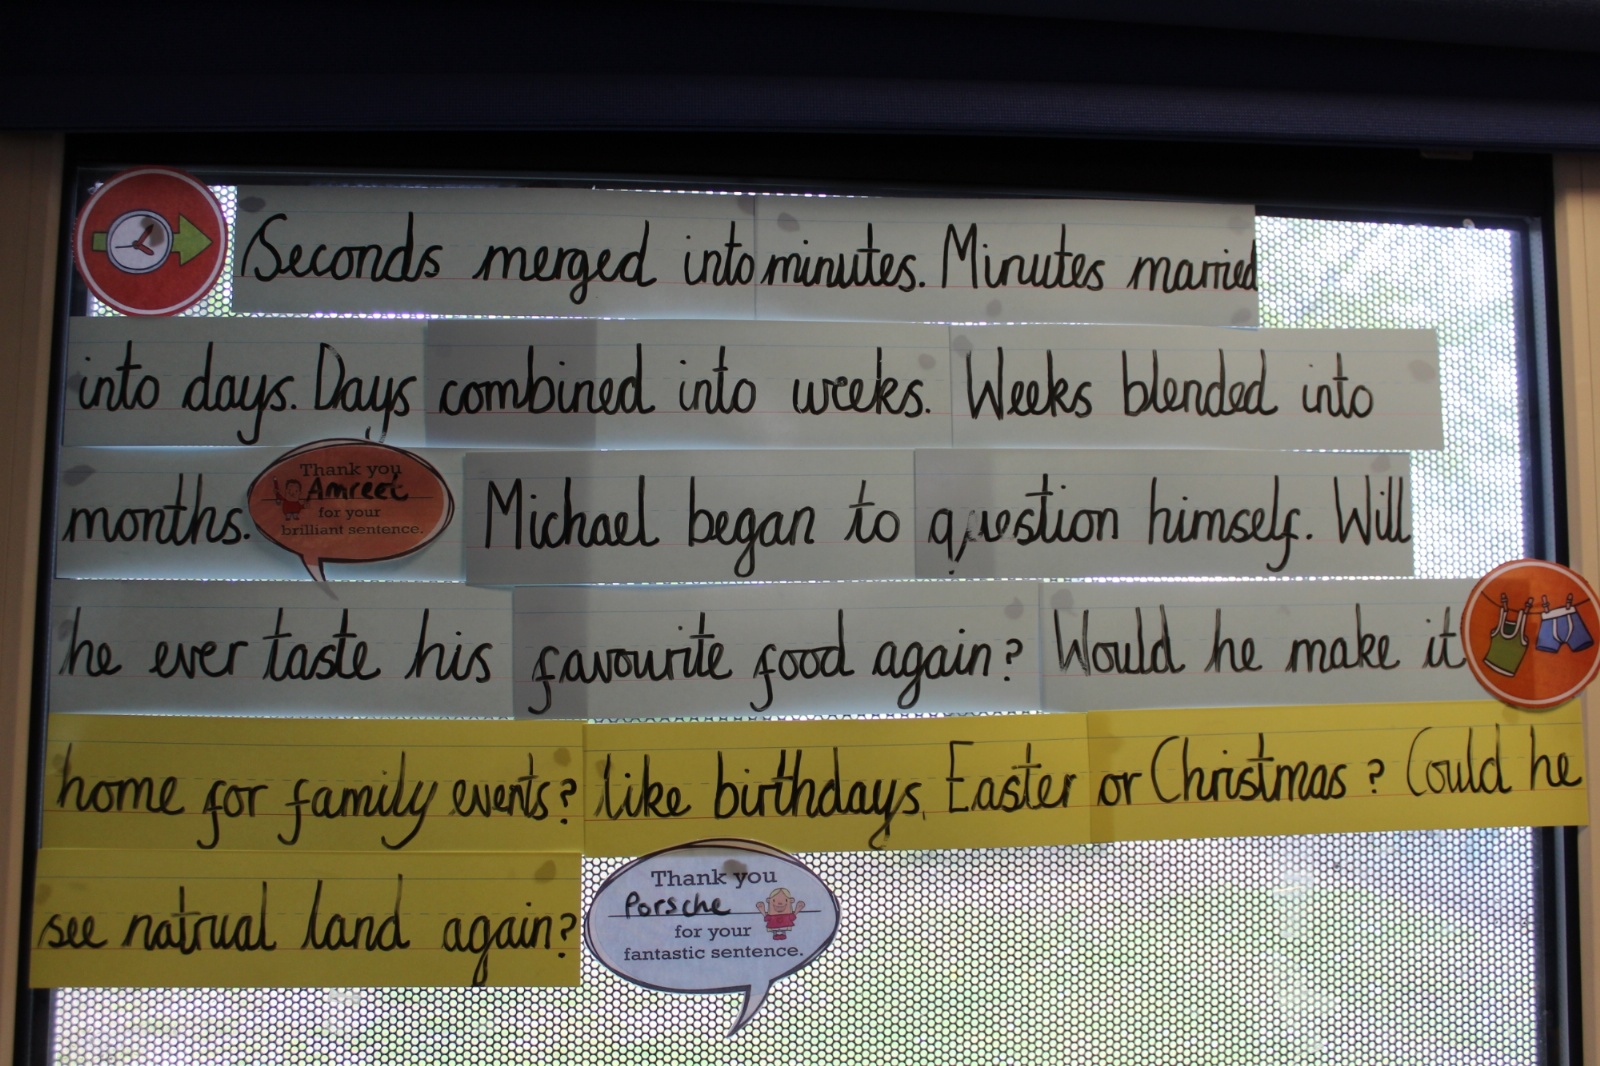 Seconds merged into minutes. Minutes married
into days. Days combined into weeks. Weeks blended into
months.
Thank you
Amreet
for your
brilliant sentence.
Michael began to question himself. Will
he ever taste his favourite food again? Would he make it
home for family events? like birthdays, Easter or Christmas? Could he
see natrual land again?
Thank you
Porsche
for your
fantastic sentence.